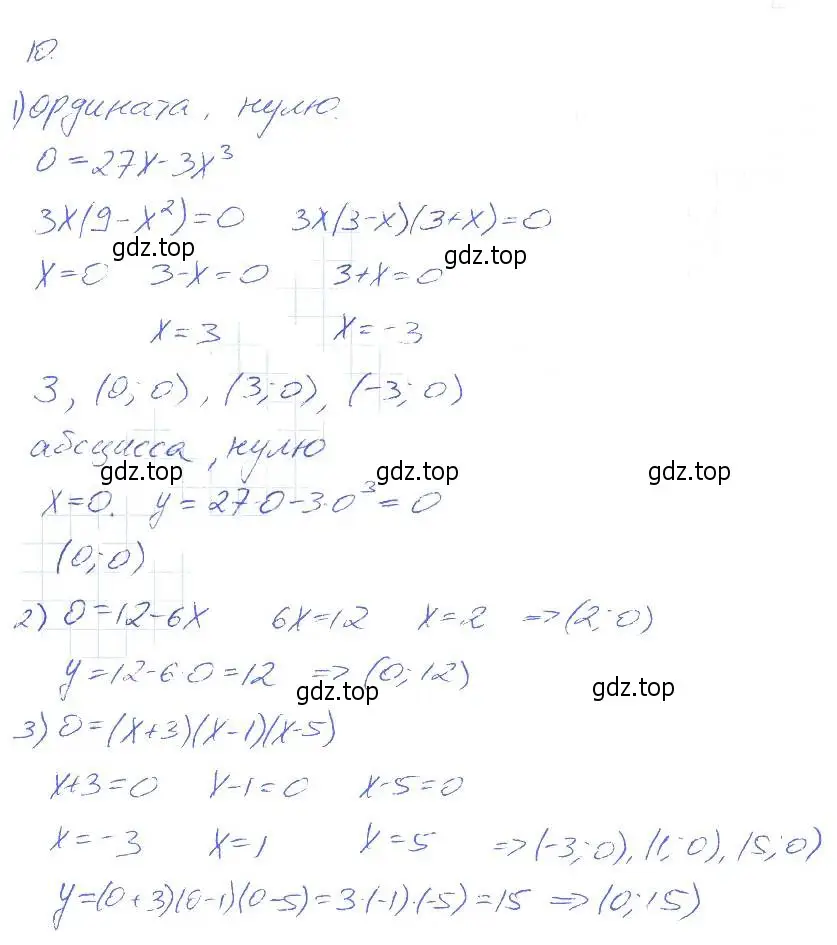 10.
1) ордината, нулю.
0 = 27x - 3x³
3x(9 - x²) = 0 3x(3-x)(3+x) = 0
gdz.top gdz.top
x = 0 3 - x = 0 3 + x = 0
x = 3 x = -3
3, (0; 0), (3; 0), (-3; 0)
абсцисса, нулю
gdz.top gdz.top gdz.top
x = 0. y = 27·0 - 3·0³ = 0
(0; 0)
2) 0 = 12 - 6x 6x = 12 x = 2 => (2; 0)
y = 12 - 6·0 = 12 => (0; 12)
gdz.top gdz.top
3) 0 = (x+3)(x-1)(x-5)
x+3 = 0 x-1 = 0 x-5 = 0
x = -3 x = 1 x = 5 => (-3; 0), (1; 0), (5; 0)
y = (0+3)(0-1)(0-5) = 3·(-1)·(-5) = 15 => (0; 15)